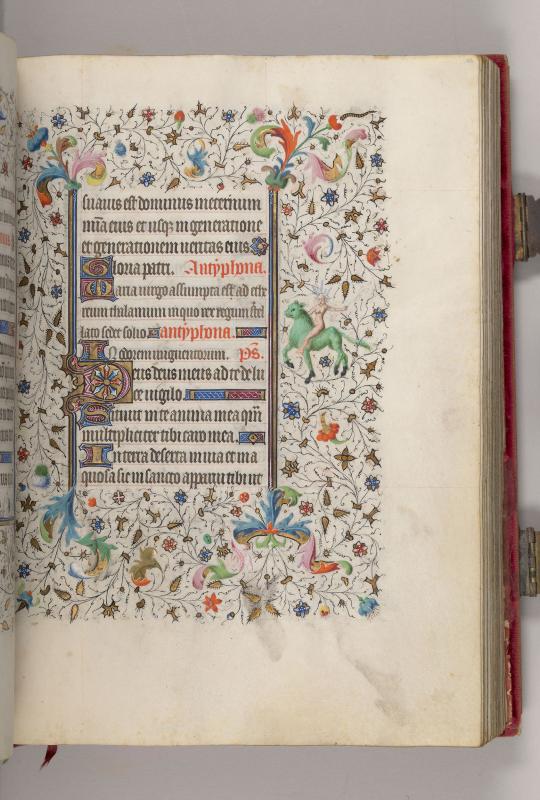 suauis est dominus ineternum
mĩa eius et usqʒ in generatione
et generationem ueritas eius
Gloria patri. Antyphona.
Maria uirgo assumpta est ad ethe
reum thalamum in quo rex regum stel
lato sedet solio antyphona.
In odorem unguentorum. ps̃.
Deus deus meus ad te de lu
ce uigilo
Sitiuit in te anima mea qm̃
multipliciter tibi caro mea.
In terra deserta in uia et ina
quosa sic in sancto apparui tibi ut